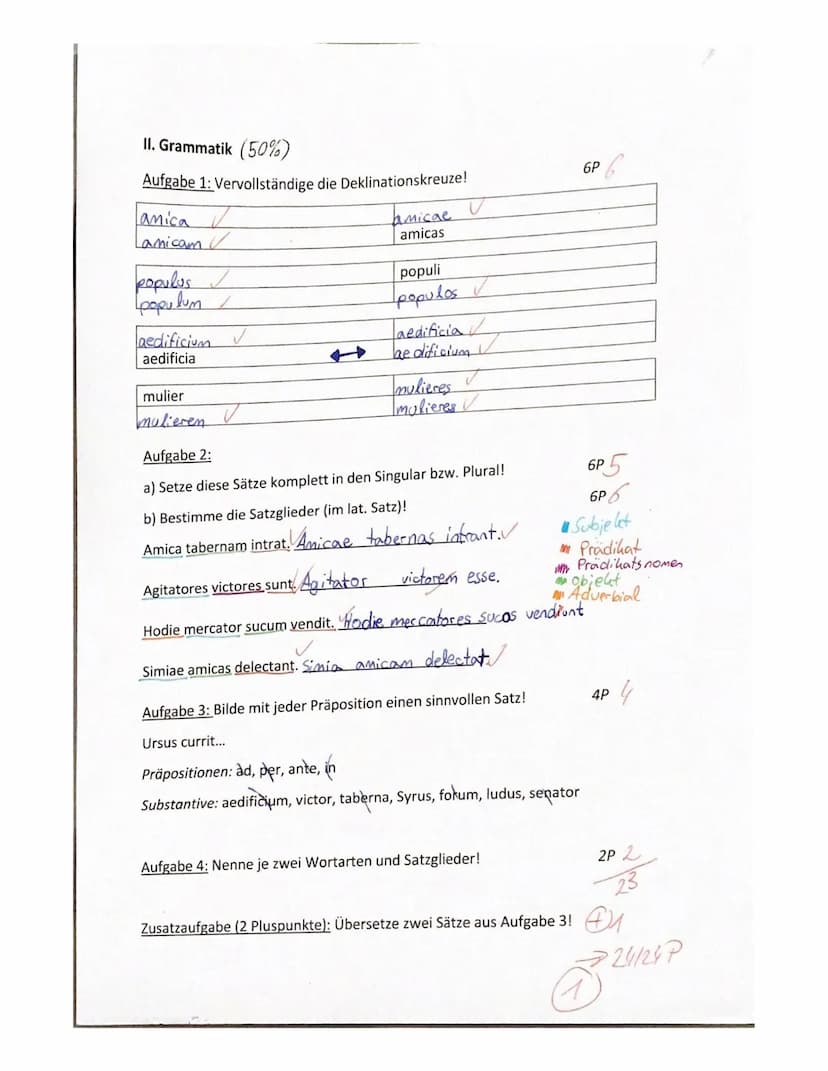 II. Grammatik (50%)
Aufgabe 1: Vervollständige die Deklinationskreuze! 6P 6
amica amicae
amicam amicas
populus populi
populum populos
aedificium aedificia
aedificia aedificium
mulier mulieres
mulieren mulieres
Aufgabe 2:
a) Setze diese Sätze komplett in den Singular bzw. Plural! 6P 5
b) Bestimme die Satzglieder (im lat. Satz)! 6P 6
Subjekt
Amica tabernam intrat. Amicae tabernas intrant.
Prädikat
Prädikatsnomen
Agitatores victores sunt. Agitator victorem esse.
Objekt
Adverbial
Hodie mercator sucum vendit. Hodie mercatores sucos vendiunt
Simiae amicas delectant. Simia amicam delectat.
Aufgabe 3: Bilde mit jeder Präposition einen sinnvollen Satz! 4P 4
Ursus currit...
Präpositionen: ad, per, ante, in
Substantive: aedificium, victor, taberna, Syrus, forum, ludus, senator
Aufgabe 4: Nenne je zwei Wortarten und Satzglieder! 2P 2
23
Zusatzaufgabe (2 Pluspunkte): Übersetze zwei Sätze aus Aufgabe 3! +1
→ 24/24 P
1